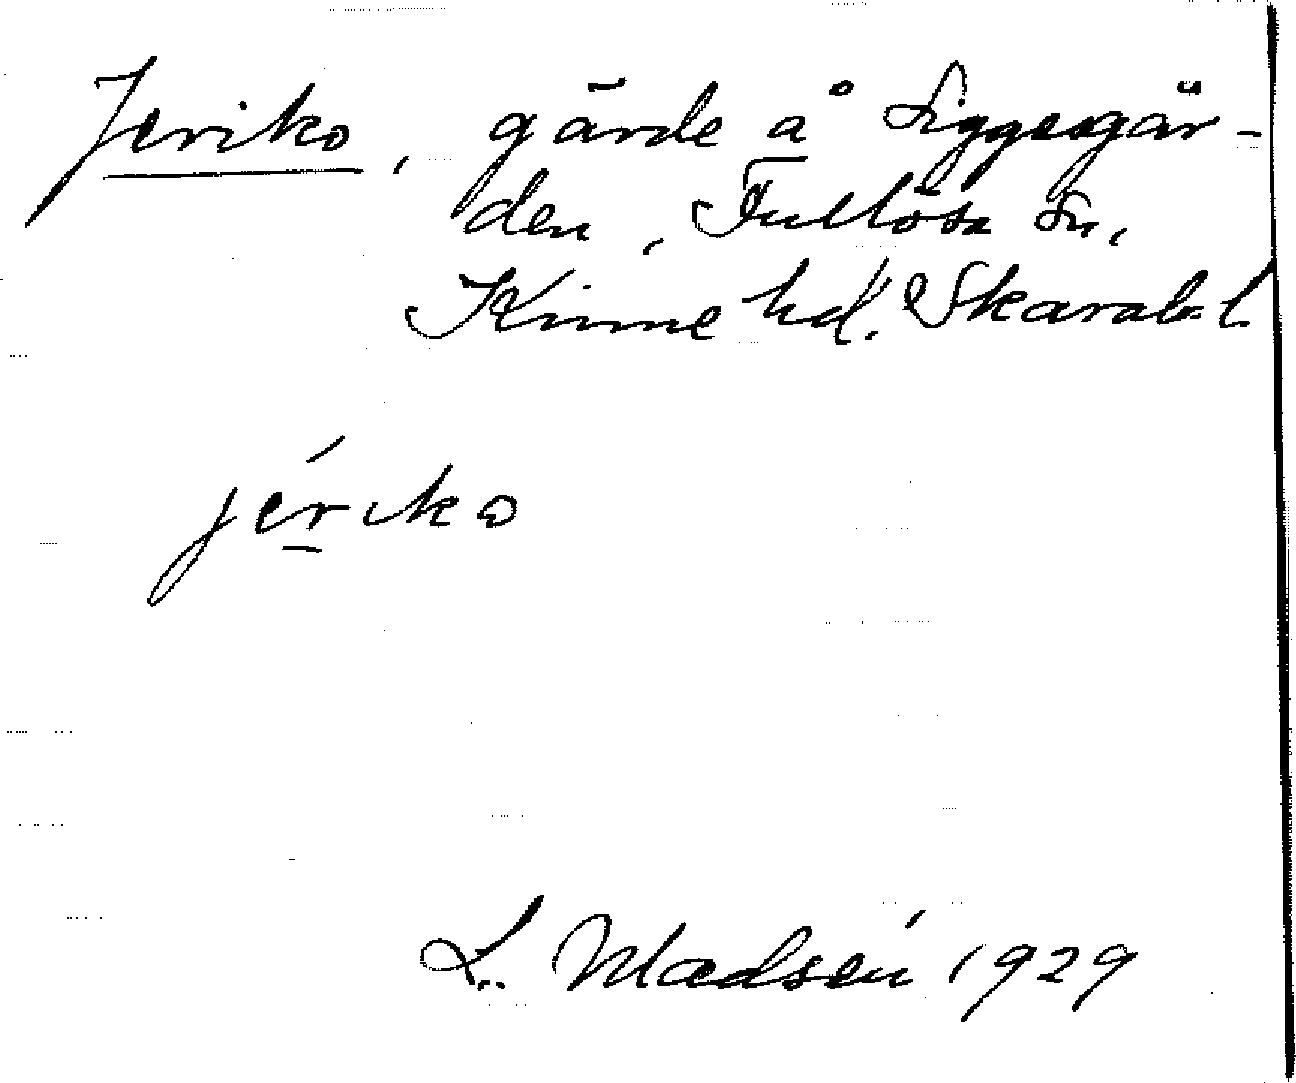 Jeriko, gärde å Siggesgår-
den, Fullösa sn,
Kinne hd. Skarab. l.
jériko
L. Madsén 1929